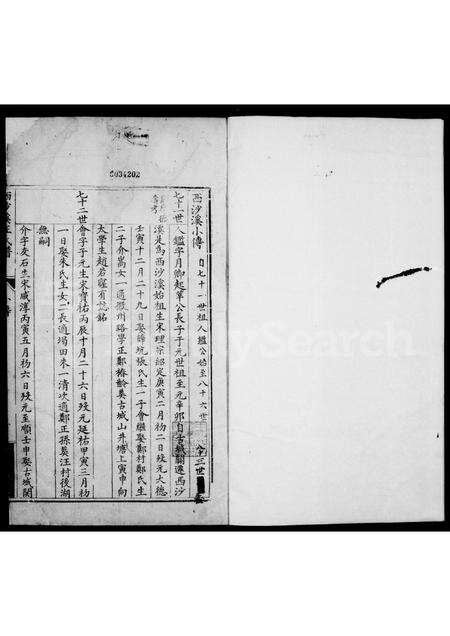 S034202
西沙溪小傳 自七十一世祖人鑑公始至八十六世
七十一世人鑑字月卿起華公長子于元世祖至元辛卯自古城關遷西沙
溪是為西沙溪始祖生宋理宗紹定庚寅二月初二日歿元大德
壬寅十二月二十九日娶 坑張氏生一子會繼娶鄭村鄭氏生
二子介嵩女一適徽州路學正鄭椿齡葬古城山井塘上寅申向
太學生趙若 有誌銘
七十二世會字子元生宋寶祐丙辰十月二十六日歿元延祐甲寅三月初
一日娶朱氏生女二長適場田朱一清次適鄭正孫葬汪村後湖
無嗣
介字友石生宋咸淳丙寅五月初六日歿元至順壬申娶古城關
西沙溪汪氏譜
小傳